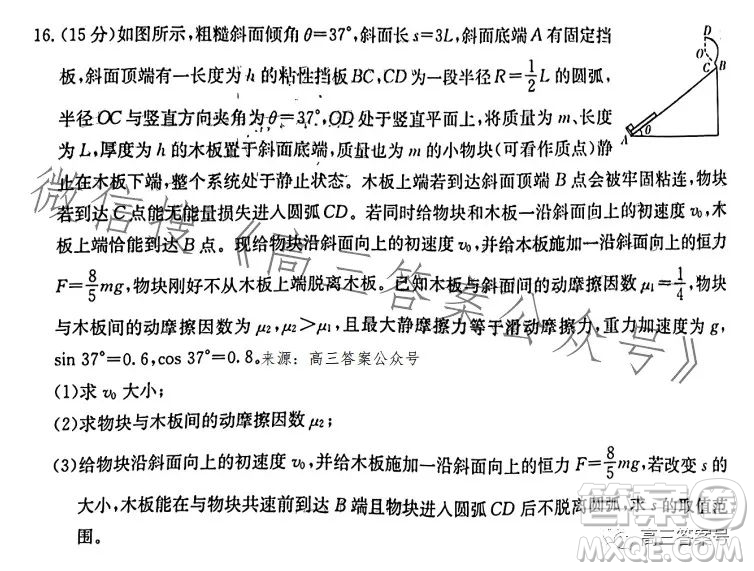 16.(15分)如图所示，粗糙斜面倾角θ=37°，斜面长s=3L，斜面底端A有固定挡
板，斜面顶端有一长度为h的粘性挡板BC，CD为一段半径R=1/2L的圆弧，
半径OC与竖直方向夹角为θ=37°，OD处于竖直平面上，将质量为m、长度
为L，厚度为h的木板置于斜面底端，质量也为m的小物块(可看作质点)静
止在木板下端，整个系统处于静止状态。木板上端若到达斜面顶端B点会被牢固粘连，物块
若到达C点能无能量损失进入圆弧CD。若同时给物块和木板一沿斜面向上的初速度v₀，木
板上端恰能到达B点。现给物块沿斜面向上的初速度v₀，并给木板施加一沿斜面向上的恒力
F=8/5mg，物块刚好不从木板上端脱离木板。已知木板与斜面间的动摩擦因数μ₁=1/4，物块
与木板间的动摩擦因数为μ₂，μ₂>μ₁，且最大静摩擦力等于滑动摩擦力，重力加速度为g，
sin 37°=0.6，cos 37°=0.8。来源：高三答案公众号
(1)求v₀大小；
(2)求物块与木板间的动摩擦因数μ₂；
(3)给物块沿斜面向上的初速度v₀，并给木板施加一沿斜面向上的恒力F=8/5mg，若改变s的
大小，木板能在与物块共速前到达B端且物块进入圆弧CD后不脱离圆弧，求s的取值范
围。
D
O
C
B
A
θ
微信搜《高三答案公众号》
答案圈
MXQE.COM
高三答案号